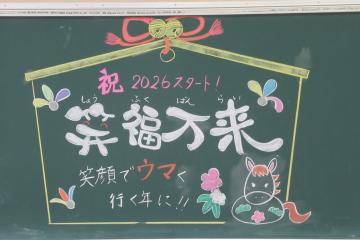 祝 2026スタート!
しょう ふく ばん らい
笑福万来
笑顔でウマく
行く年に!!